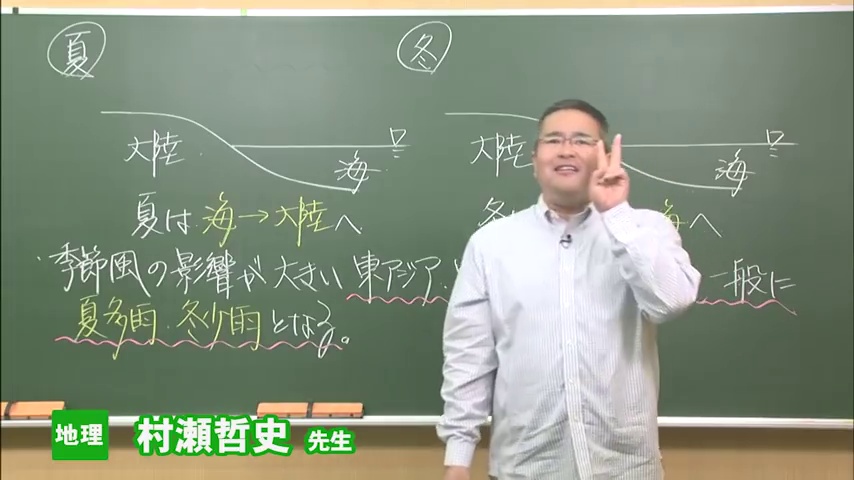 夏 冬
大陸 海 大陸 海
夏は 海→大陸へ 海へ
季節風の影響が大きい 東アジア 一般に
夏多雨・冬少雨となる。
地理 村瀬哲史 先生